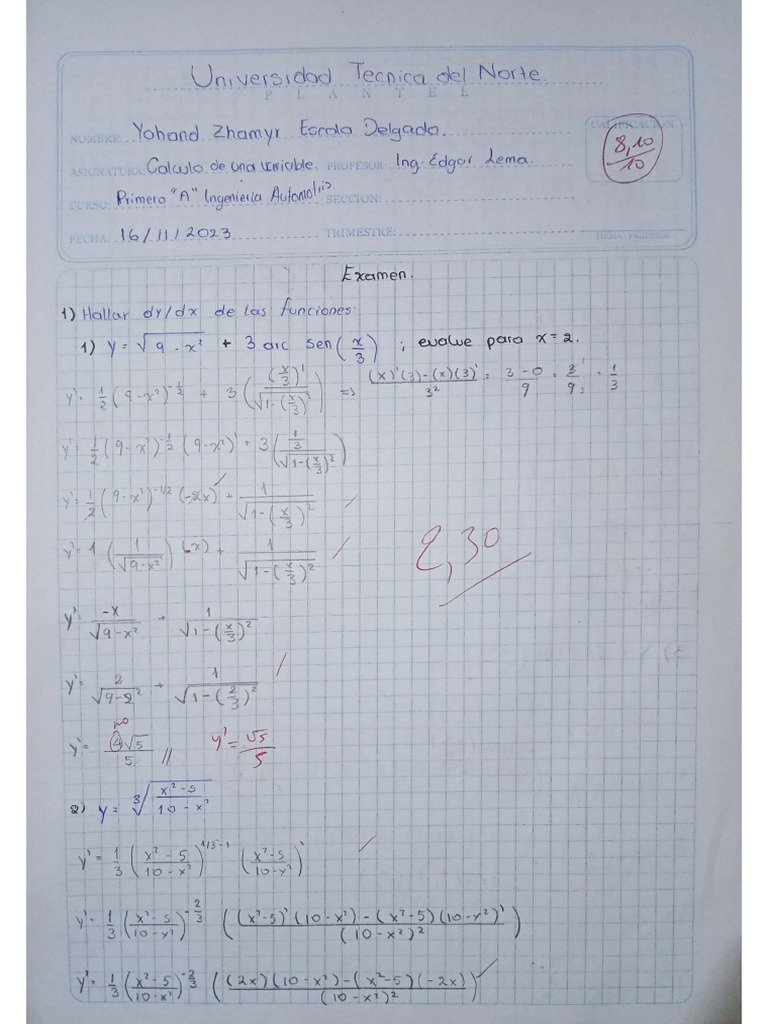 Universidad Tecnica del Norte
PLANTEL
NOMBRE: Yohand Zhamyr Escola Delgado.
CALIFICACIÓN
8,10/10
ASIGNATURA: Calculo de una variable. PROFESOR: Ing. Edgar Lema.
CURSO: Primero "A" Ingenieria Automotriz SECCION:
FECHA: 16/11/2023 TRIMESTRE:
FIRMA - PROFESOR
Examen.
1) Hallar dy/dx de las funciones:
1) y = √(9 - x²) + 3 arc sen(x/3) ; evalue para x = 2.
y' = 1/2 (9-x²)^(-1/2) + 3((x/3)'/√(1-(x/3)²)) => ((x)'(3)-(x)(3)')/3² = (3-0)/9 = 3/9 = 1/3
y' = 1/2 (9-x²)^(-1/2) (9-x²)' + 3((1/3)/√(1-(x/3)²))
y' = 1/2 (9-x²)^(-1/2) (-2x) + 1/√(1-(x/3)²)
y' = 1 (1/√(9-x²)) (-x) + 1/√(1-(x/3)²)
2,30
y' = -x/√(9-x²) + 1/√(1-(x/3)²)
y' = 2/√(9-2²) + 1/√(1-(2/3)²)
no
y' = 4√5/5 // y' = √5/5
2) y = ∛((x²-5)/(10-x²))
y' = 1/3 ((x²-5)/(10-x²))^(1/3-1) ((x²-5)/(10-x²))'
y' = 1/3 ((x²-5)/(10-x²))^(-2/3) (((x²-5)'(10-x²)-(x²-5)(10-x²)')/(10-x²)²)
y' = 1/3 ((x²-5)/(10-x²))^(-2/3) (((2x)(10-x²)-(x²-5)(-2x))/(10-x²)²)